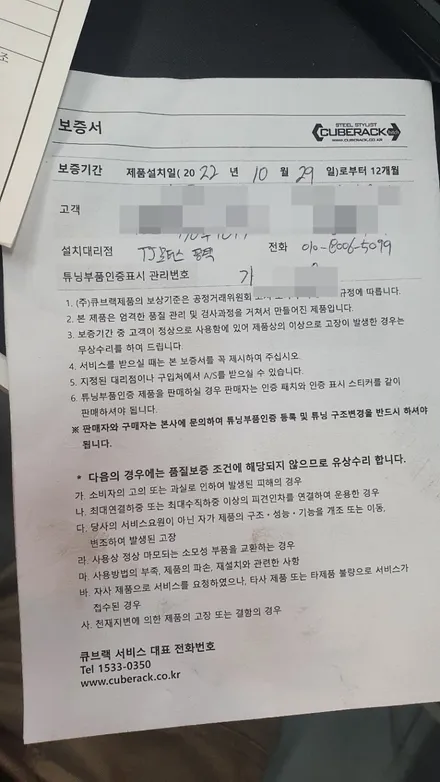 조
STEEL STYLIST
CUBERACK
WWW.CUBERACK.CO.KR
보증서
보증기간 제품설치일( 20 22 년 10 월 29 일)로부터 12개월
고객
설치대리점 전화 010-8006-5099
튜닝부품인증표시 관리번호 가
1. (주)큐브랙제품의 보상기준은 공정거래위원회 규정에 따릅니다.
2. 본 제품은 엄격한 품질 관리 및 검사과정을 거쳐서 만들어진 제품입니다.
3. 보증기간 중 고객이 정상으로 사용함에 있어 제품상의 이상으로 고장이 발생한 경우는
무상수리를 하여 드립니다.
4. 서비스를 받으실 때는 본 보증서를 꼭 제시하여 주십시오.
5. 지정된 대리점이나 구입처에서 A/S를 받으실 수 있습니다.
6. 튜닝부품인증 제품을 판매하실 경우 판매자는 인증 패치와 인증 표시 스티커를 같이
판매하셔야 됩니다.
※ 판매자와 구매자는 본사에 문의하여 튜닝부품인증 등록 및 튜닝 구조변경을 반드시 하셔야
됩니다.
* 다음의 경우에는 품질보증 조건에 해당되지 않으므로 유상수리 합니다.
가. 소비자의 고의 또는 과실로 인하여 발생된 피해의 경우
나. 최대연결하중 또는 최대수직하중 이상의 피견인차를 연결하여 운용한 경우
다. 당사의 서비스요원이 아닌 자가 제품의 구조·성능·기능을 개조 또는 이동,
변조하여 발생된 고장
라. 사용상 정상 마모되는 소모성 부품을 교환하는 경우
마. 사용방법의 부족, 제품의 파손, 재설치와 관련한 사항
바. 자사 제품으로 서비스를 요청하였으나, 타사 제품 또는 타제품 불량으로 서비스가
접수된 경우
사. 천재지변에 의한 제품의 고장 또는 결함의 경우
큐브랙 서비스 대표 전화번호
Tel 1533-0350
www.cuberack.co.kr